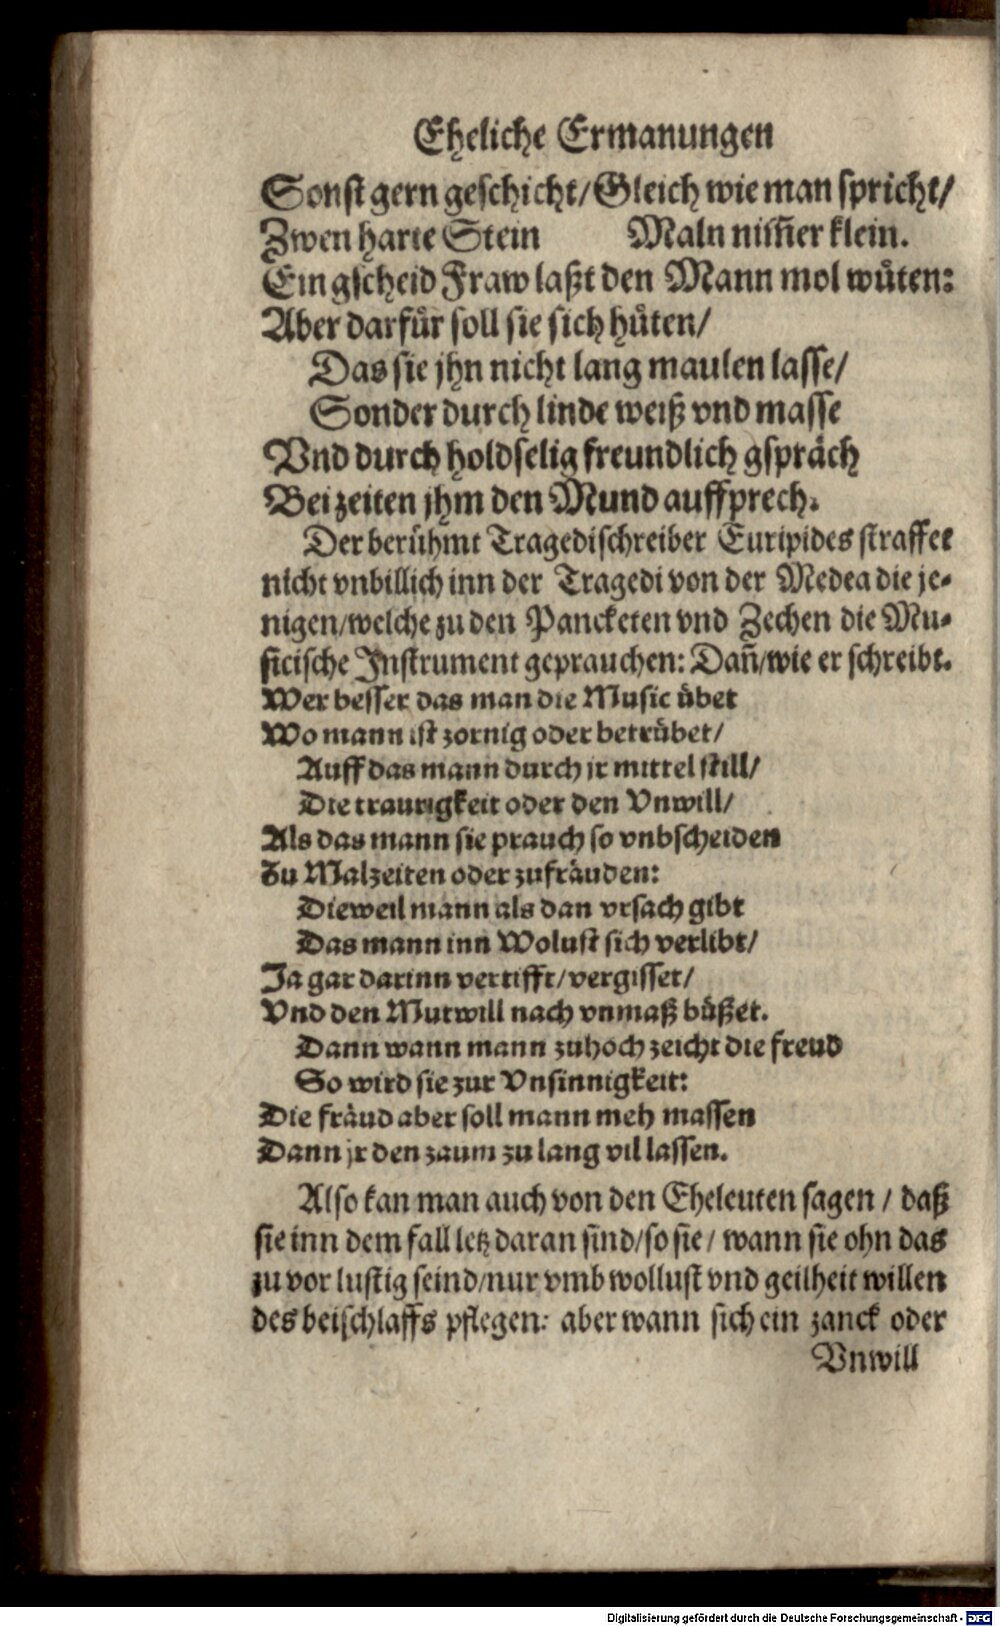 Eheliche Ermanungen
Sonst gern geschicht/Gleich wie man spricht/
Zwen harte Stein Maln nim̃er klein.
Ein gscheid Fraw laßt den Mann mol wuͤten:
Aber darfuͤr soll sie sich huͤten/
Das sie jhn nicht lang maulen lasse/
Sonder durch linde weiß vnd masse
Vnd durch holdselig freundlich gspraͤch
Bei zeiten jhm den Mund auffprech.
Der beruͤhmt Tragedischreiber Euripides straffet
nicht vnbillich inn der Tragedi von der Medea die je-
nigen/welche zu den Pancketen vnd Zechen die Mu-
sicische Instrument geprauchen: Dañ/wie er schreibt.
Wer besser das man die Music uͤbet
Wo mann ist zornig oder betruͤbet/
Auff das mann durch ir mittel still/
Die traurigkeit oder den Vnwill/
Als das mann sie prauch so vnbscheiden
Zu Malzeiten oder zufraͤuden:
Dieweil mann als dan vrsach gibt
Das mann inn Wolust sich verlibt/
Ja gar darinn vertifft/vergisset/
Vnd den Mutwill nach vnmaß buͤßet.
Dann wann mann zuhoch zeicht die freud
So wird sie zur Vnsinnigkeit:
Die fraͤud aber soll mann meh massen
Dann jr den zaum zu lang vil lassen.
Also kan man auch von den Eheleuten sagen / daß
sie inn dem fall letz daran sind/so sie / wann sie ohn das
zu vor lustig seind/nur vmb wollust vnd geilheit willen
des beischlaffs pflegen: aber wann sich ein zanck oder
Vnwill
Digitalisierung gefördert durch die Deutsche Forschungsgemeinschaft - DFG